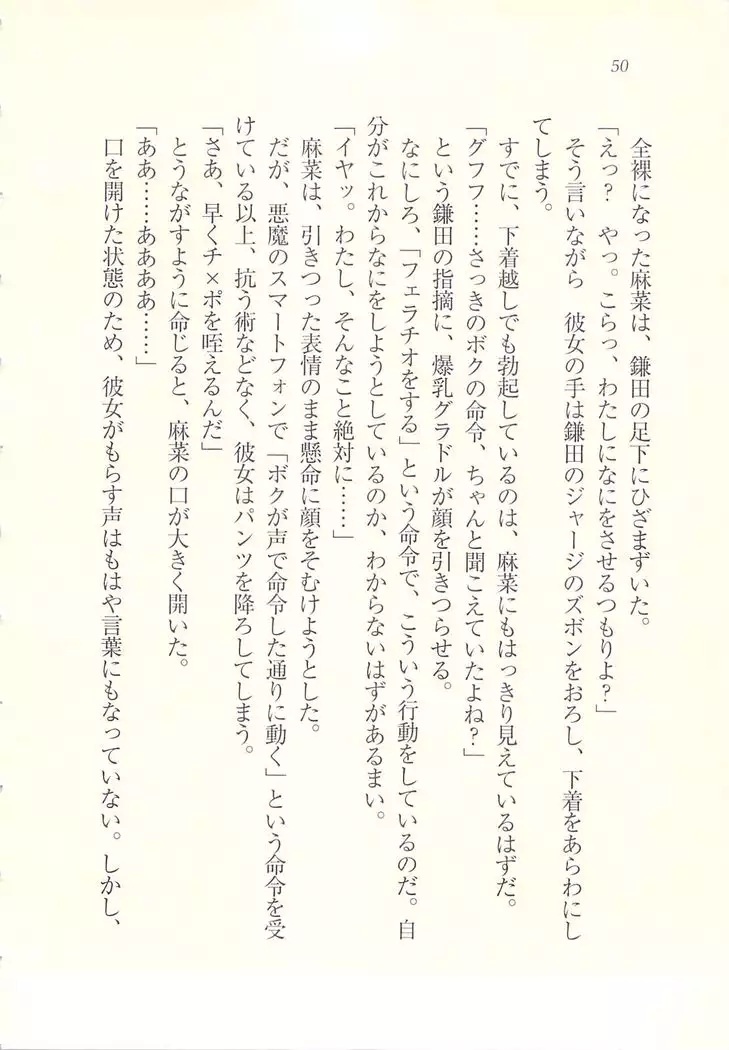 50
全裸になった麻菜は、鎌田の足下にひざまずいた。
「えっ？　やっ。こらっ、わたしになにをさせるつもりよ？」
そう言いながら　彼女の手は鎌田のジャージのズボンをおろし、下着をあらわにし
てしまう。
すでに、下着越しでも勃起しているのは、麻菜にもはっきり見えているはずだ。
「グフフ……さっきのボクの命令、ちゃんと聞こえていたよね？」
という鎌田の指摘に、爆乳グラドルが顔を引きつらせる。
なにしろ、「フェラチオをする」という命令で、こういう行動をしているのだ。自
分がこれからなにをしようとしているのか、わからないはずがあるまい。
「イヤッ。わたし、そんなこと絶対に……」
麻菜は、引きつった表情のまま懸命に顔をそむけようとした。
だが、悪魔のスマートフォンで「ボクが声で命令した通りに動く」という命令を受
けている以上、抗う術などなく、彼女はパンツを降ろしてしまう。
「さあ、早くチ×ポを咥えるんだ」
とうながすように命じると、麻菜の口が大きく開いた。
「ああ……ああああ……」
口を開けた状態のため、彼女がもらす声はもはや言葉にもなっていない。しかし、